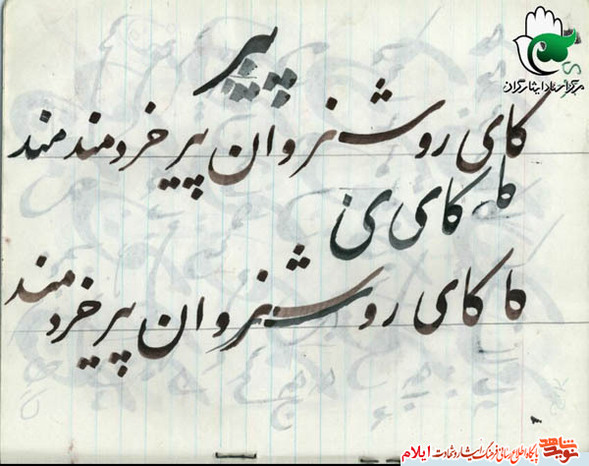 پیر
مرکز اسناد ایثارگران
کای روشنروان پیر خردمند مند
کا کای ی ن
کا کای روشنروان پیر خردمند
نوید شاهد پایگاه اطلاع رسانی فرهنگ ایثار و شهادت ایلام